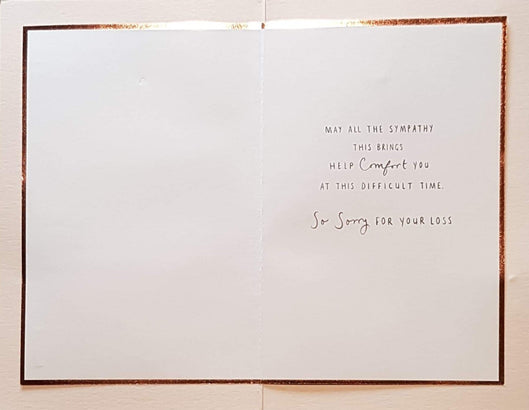 MAY ALL THE SYMPATHY
THIS BRINGS
HELP Comfort YOU
AT THIS DIFFICULT TIME.
So Sorry FOR YOUR LOSS